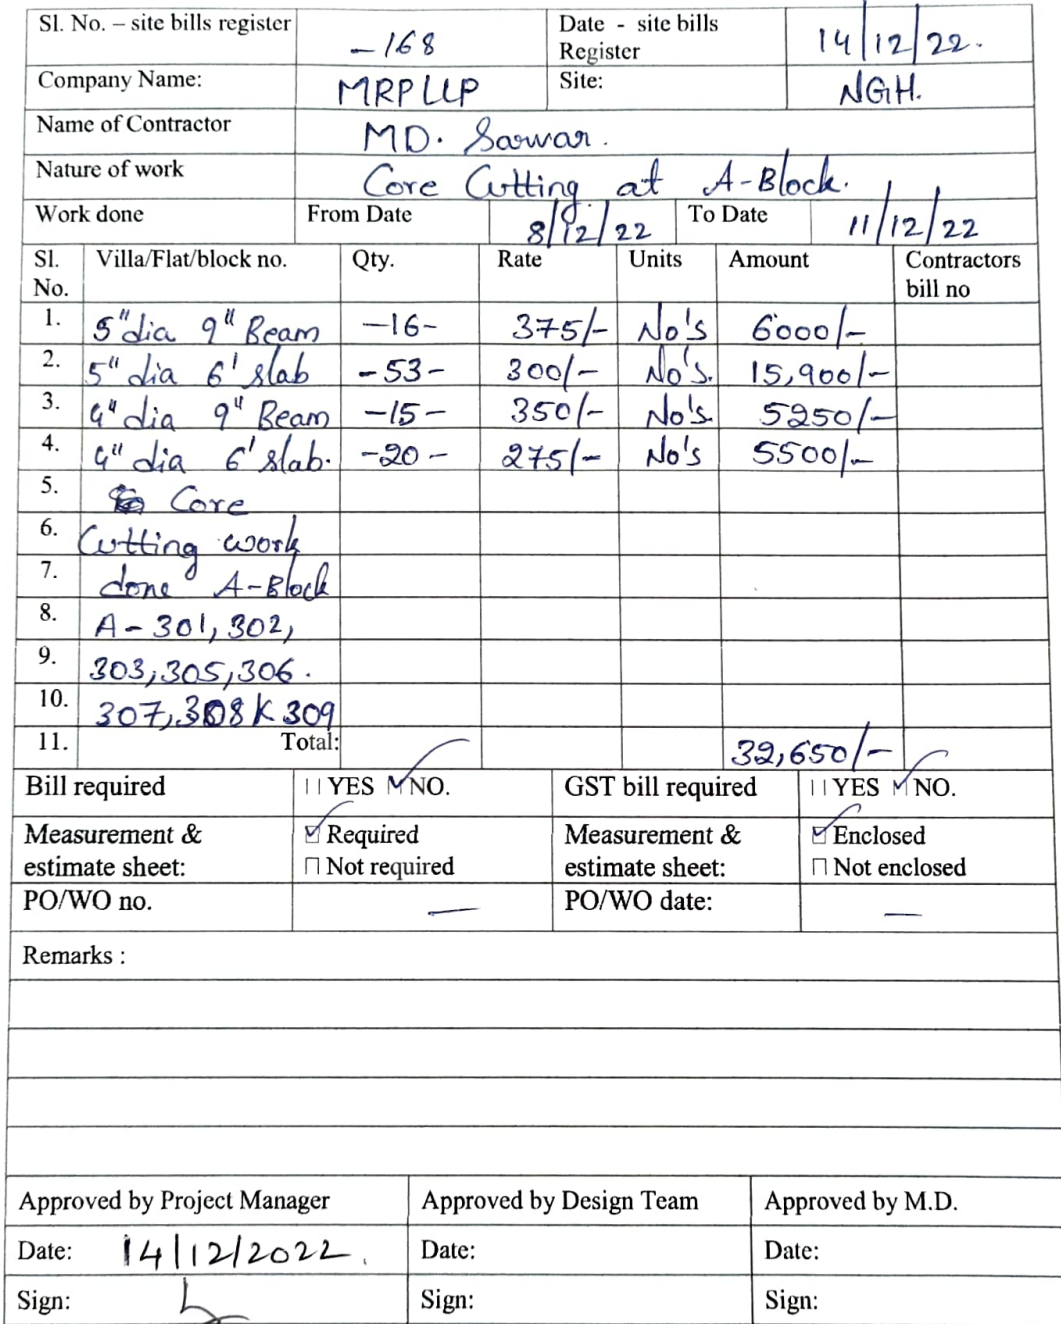 Sl. No. – site bills register -168 Date - site bills Register 14/12/22.
Company Name: MRPLLP Site: NGH.
Name of Contractor MD. Sarwar.
Nature of work Core Cutting at A-Block.
Work done From Date 8/12/22 To Date 11/12/22
Sl. No. Villa/Flat/block no. Qty. Rate Units Amount Contractors bill no
1. 5" dia 9" Beam -16- 375/- No's 6000/-
2. 5" dia 6' slab -53- 300/- No's. 15,900/-
3. 4" dia 9" Beam -15- 350/- No's 5250/-
4. 4" dia 6' slab. -20- 275/- No's 5500/-
5. Core
6. Cutting work
7. done A-Block
8. A-301, 302,
9. 303, 305, 306.
10. 307, 308 & 309
11. Total: 32,650/-
Bill required YES NO. GST bill required YES NO.
Measurement & estimate sheet: ☑ Required ☐ Not required Measurement & estimate sheet: ☑ Enclosed ☐ Not enclosed
PO/WO no. — PO/WO date: —
Remarks :
Approved by Project Manager Approved by Design Team Approved by M.D.
Date: 14/12/2022. Date: Date:
Sign: Sign: Sign: